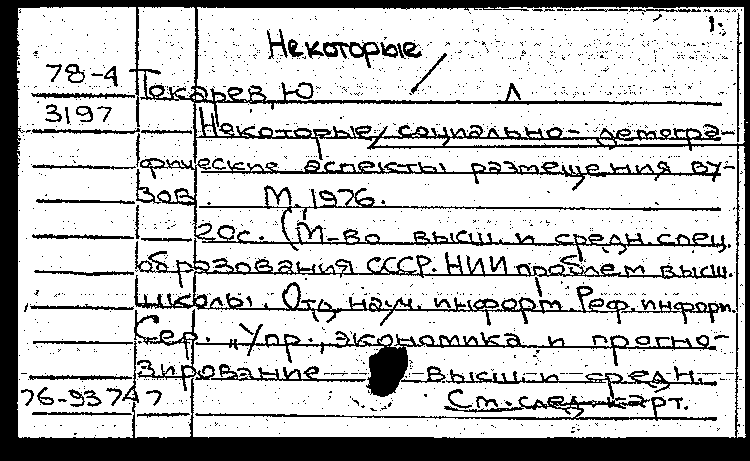 1.
Некоторые
78-4 Токарев, Ю Л
3197 Некоторые социально-демогра-
фические аспекты размещения ву-
зов. М., 1976.
20с. (М-во высш. и средн. спец.
образования СССР. НИИ проблем высш.
школы. Отд. науч. информ. Реф. информ.
Сер. „Упр., экономика и прогно-
зирование высш. и средн.
76-93747 См. след. карт.